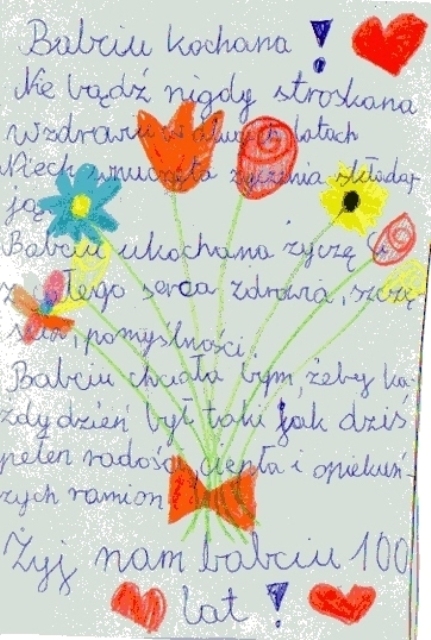 Babciu kochana!
Nie bądź nigdy stroskana
W zdrowiu w długich latach
Niech wnuczęta życzenia składa-
ją
Babciu ukochana życzę Ci
z całego serca zdrowia, szczę-
ścia, pomyślności.
Babciu chciała bym, żeby ka-
żdy dzień był taki jak dziś
pełen radości, ciepła i opiekuń-
czych ramion
Żyj nam babciu 100
lat!